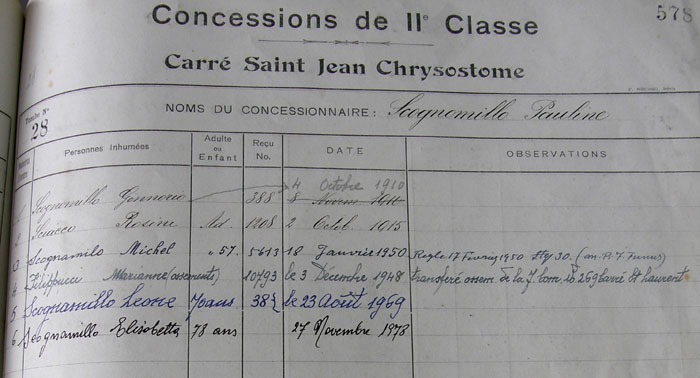 578
Concessions de IIe Classe
Carré Saint Jean Chrysostome
Tombe No
28
NOMS DU CONCESSIONNAIRE: Scognomillo Pauline
Personnes Inhumées Adulte ou Enfant Reçu No. DATE OBSERVATIONS
1 Scognomillo Gennario 388 4 Octobre 1910
8 Novem. 1910
2 Sciacco Rosine Ad. 1908 2 Octob. 1915
3 Scognamilo Michel " 57. 5613 18 Janvier 1950 Regle 17 Fevrier 1950
4 Filippucci Marianne (ossements) 10493 le 3 Décembre 1948 transferé ossem. de la 269 Carré St Laurent
5 Scognamillo Leone 70 ans 38 le 23 Août 1969
6 Scognamillo Elisabetta 78 ans 27 Novembre 1978